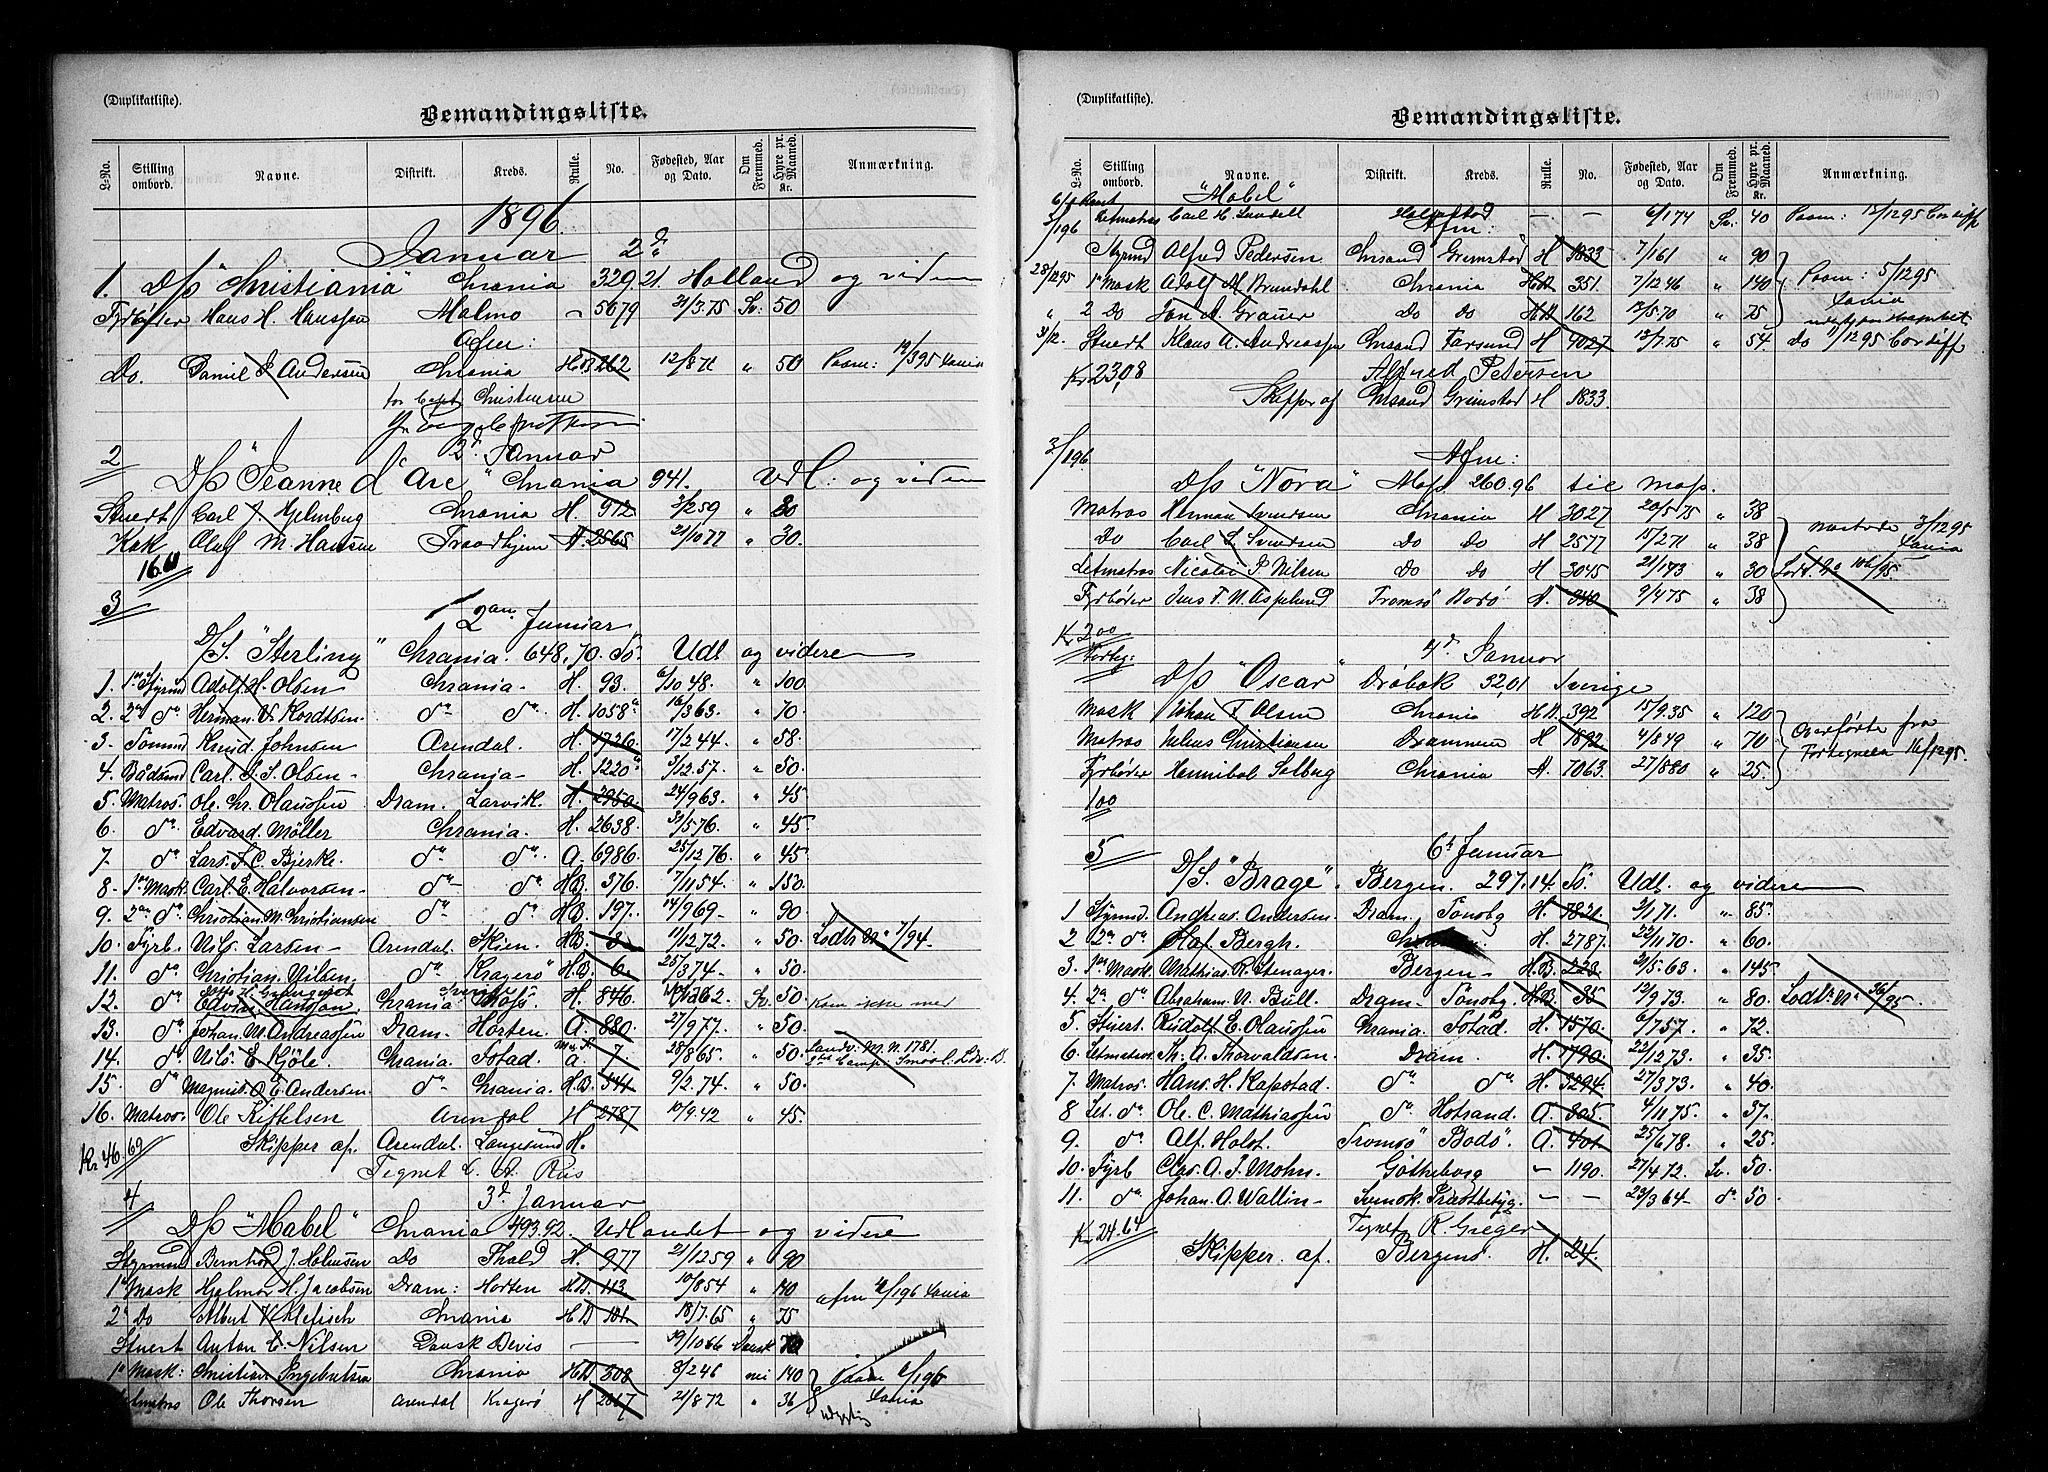 (Duplikatliste).
Bemandingsliste.
L-No. Stilling ombord. Navne. Distrikt. Kreds. Rulle. No. Fødested, Aar og Dato. Om Fremmed. Hyre pr. Maaned. Kr. Anmærkning.
1896.
Januar 2d
1. D/s "Christiania" Chrania 329.21. Holland og videre
Fyrbøter Hans H. Hansson Malmo - 5679 21/3.75 Sv: 50
Afm:
Do. Daniel J. Andersen Chrania H.B. 262 12/871 " 50 Paam: 19/395 Xania
for Capt Christensen
2 2d Januar
D/s "Jeanne d'Arc" Chrania 941. Udl: og videre
Stuert Carl J. Hjelmberg Chrania H. 912 3/259 " 80
Kok Oluf M. Hansen Trondhjem A. 2565 21/1077 " 30.
160
3 2den Januar
D/S. "Sterling" Chrania. 648,70. To. Udl og videre
1. 1ste Styrmd Adolf H. Olsen Chrania. H. 93. 6/1048. " 100
2. 2den do Herman V. Kordtsen. do do H. 1058 16/363. " 70.
3. Tømmd Knud Johnsen Arendal. H. 1726 17/244. " 58
4. Bådsmd Carl. J. S. Olsen Chrania H. 1220 3/1257. " 50.
5. Matros. Ole Chr. Olaussen Dram. Larvik. H. 2950 24/963. " 45
6. do Edvard Möller Chrania. H. 2638. 31/576. " 45.
7. do Lars J. C. Bjerke. do do A. 6986 25/1276. " 45
8. 1ste Mask. Carl E. Halvorsen do do H.B. 376 7/1154. " 150
9. 2den do Christian M. Christiansen do do H.B. 197. 14/969. " 90.
10. Fyrb. Nils Larsen Arendal. Skien. H.B. 8 11/1272. " 50. Lodts No 7/94.
11. do Christian Nilsen do Kragerø H.B. 6. 25/374. " 50.
12. do Edvin Hanssen Chrania H. 846 Sv. 50. Kom ikke med
13. do Johan M. Andreassen Dram. Horten. A. 880 27/977. " 50.
14. do Nils E Kjöle. Chrania. Fstad. a. 7. 28/865. " 50.
15. do Magnus O. E. Andersen. do Chrania. H.B. 541 9/2.74. " 50.
16. Matros Ole Kittelsen Arendal H 2787 10/9.42 " 45.
Kr 46.69 Skipper af. Arendal. Langesund H.
Tegnet C. A. Riis
4 3d Januar
D/s "Mabel" Chrania 493.92. Udlandet og videre
Styrmd Bernhard J. Holmsen Do Thald H. 977 21/1259 " 90
1ste Mask Hjalmar H. Jacobsen Dram: Horten H.B. 113 10/854 " 140 afm 4/196 Xania
2 Do Albert Klefisch Chrania H B 101 18/7.65 " 75
Stuert Anton C. Nilsen Dansk Bevis — 19/1066 Dansk 70
1ste Mask: Christian Engebretsen Chrania H.B 508 8/246 nei 140 Paam 4/196 Xania
Letmatros Ole Thorsen Arendal Kragerø H 2067 21/872 " 36
(Duplikatliste).
Bemandingsliste.
L-No. Stilling ombord. Navne. Distrikt. Kreds. Rulle. No. Fødested, Aar og Dato. Om Fremmed. Hyre pr. Maaned. Kr. Anmærkning.
"Mabel"
3/196 Letmatros Carl H. Lundell Halmstad — — 6/174 Sv. 40 Paam: 12/1295 Cardiff
Afm:
Styrmd Alfred Pedersen Chrsand Grimstad H 1833 7/161 " 90
28/1295 1ste Mask Adolf M. Brundahl Chrania H.B. 351. 7/1246 " 140 Paam: 5/1295 Xania
" 2 Do Jan A. Grauer Do Do H.B. 162 12/5.70 " 75
31/12. Stuert Klaus A. Andreassen Chrsand Farsund H 4027 12/775 " 54. Do 11/1295 Cardiff
Kr 23,08 Alfred Petersen
Skipper af Chrsand Grimstad H 1833.
3/196 Afm:
D/s "Nora" Moss 260.96 til Moss.
Matros Herman Svendsen Chrania H 3027 20/575 " 38
Do Carl L. Svendsen Do Do H 2577 15/271 " 38 mønstrede 3/1295 Xania
Letmatros Nicolai P. Nilsen Do Do H 3045 21/173 " 30 Lodts. No 106/95.
Fyrbøder Jens T. N. Aspelund Tromsø Bodø A. 340 9/475 " 38
Kr 2.00
4d Januar
D/s "Oscar" Drøbak 32,01 Sverige
Mask Johan F. Olsen Chrania H.B. 392 15/9.35 " 120
Matros Julius Christiansen Drammen H 1892 4/849 " 70 Overførte fra Fortegnelse 16/1295.
Fyrbøder Hannibal Solberg Chrania A. 7063. 27/880 " 25.
100
5 6d Januar
D/S. "Brage". Bergen. 297.14. To. Udl. og videre
1 Styrmd. Andreas Andersen. Dram. Tønsbg H. 7821. 3/171. " 85.
2 2den do Olaf Bergh. H. 2787. 22/1170. " 60.
3. 1ste Mask. Mathias R. Stenager. Bergen H.B. 228. 21/5.63. " 145
4. 2den do Abraham N. Bull. Dram. Tønsbg. H.B. 35 12/973. " 80. Lodts No 36/95.
5. Stuert. Rudolf E. Olaussen Chrania. Fstad. H. 1570. 6/757. " 72.
6. Letmatros. Th. A. Thorvaldsen. Dram. H. 1790. 22/1273. " 35.
7. Matros. Hans H. Kapstad. do do H. 3294. 27/373. " 40
8 Let. do Ole C. Mathiassen do Holsand. A. 305. 4/1175. " 37.
9. do Alf Holst. Tromsø Bodø. A. 401. 25/678. " 25.
10. Fyrb Clas A. J. Mohn. Gøtheborg - 1190. 27/472. Sv. 50.
11. do Johan A. Wallin Svensk. Præstebevg. — — 29/364. do 50.
Kr. 24.64 Tegnet R. Greger
Skipper af. Bergens. H. 24.